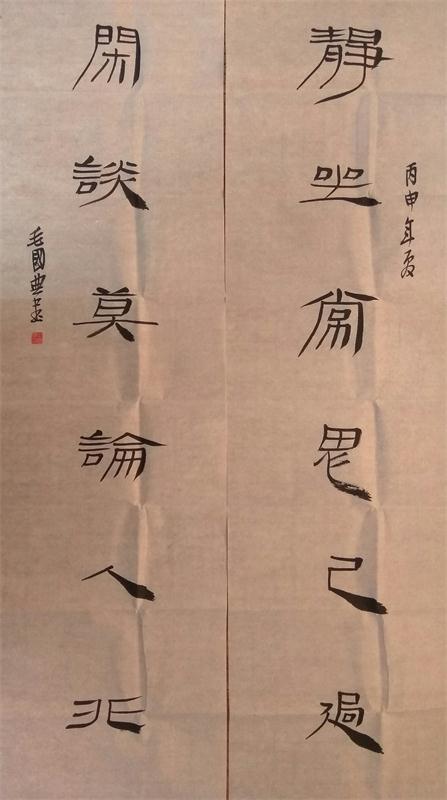 丙申年夏
靜坐常思己過
閑談莫論人非
毛國典書